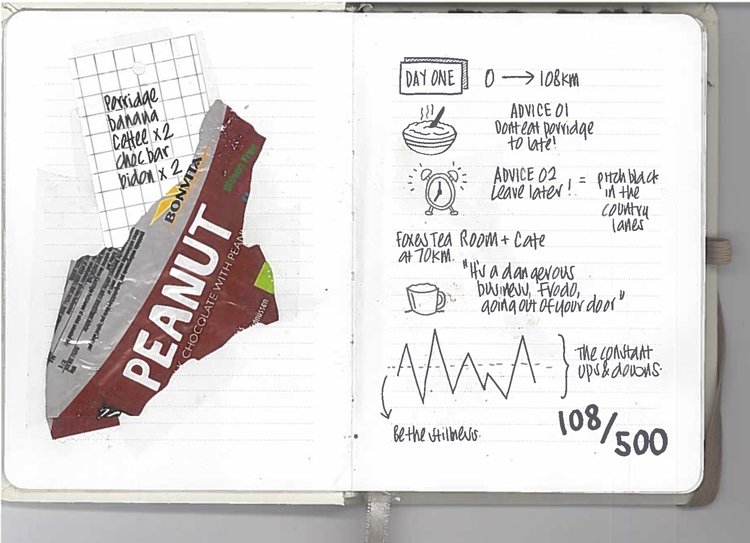 Porridge
banana
Coffee x 2
choc bar
bidon x 2
BONVITA
Gluten Free
PEANUT
CHOCOLATE WITH PEAN
DAY ONE 0 → 108km
ADVICE 01
Dont eat porridge
to late!
ADVICE 02
Leave later! = pitch black
in the
country
lanes
Foxes Tea Room + Cafe
at 70km.
"It's a dangerous
business, Frodo,
going out of your door"
The constant
ups & downs.
Be the stillness.
108/500